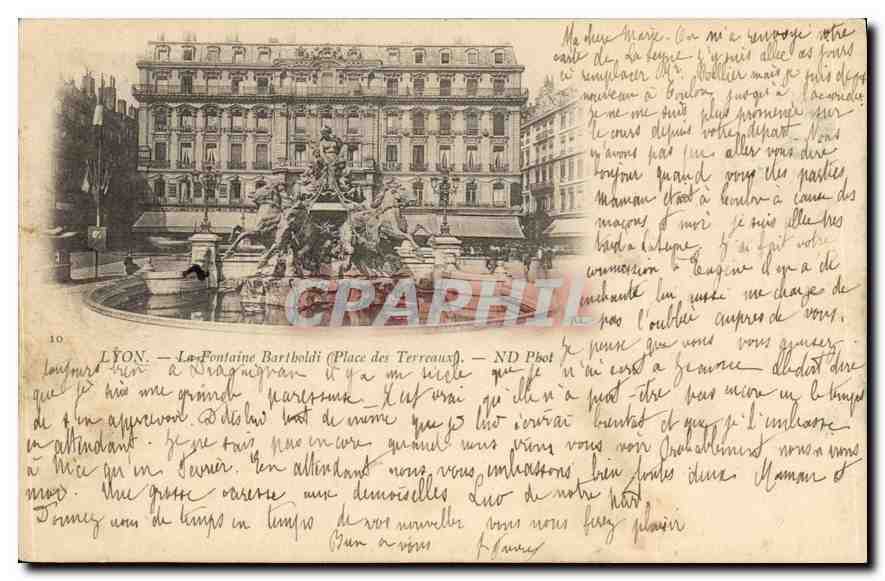 Ma chère Marie. On m'a renvoyé votre
carte de La Seyne
remplacer Mr mais je suis de
nouveau à Toulon jusqu'à
Je ne me suis plus promenée sur
le cours depuis votre départ. Nous
n'avons pas pu aller vous dire
bonjour quand vous êtes parties
maman était à Toulon à cause des
maçons et moi je suis allée très
tard à La Seyne. J'ai fait votre
commission à Eugène il en a été
enchanté lui aussi me charge de
ne pas l'oublier auprès de vous.
10
LYON. — La Fontaine Bartholdi (Place des Terreaux). — ND Phot
CARPHIL
Je pense que vous vous amusez
toujours bien à Draguignan il y a un siècle que je n'ai écrit à elle doit dire
que je suis une grande paresseuse. Il est vrai qu'elle n'a peut-être pas encore eu le temps
de s'en apercevoir. Dis lui tout de même que je lui écrirai bientôt et que je l'embrasse
en attendant. Je ne sais pas encore quand nous irons vous voir Probablement nous n'irons
à Nice qu'en Février. En attendant nous vous embrassons bien toutes deux Maman et
moi. Une grosse caresse aux demoiselles de notre part
Donnez nous de temps en temps de vos nouvelles vous nous ferez plaisir
Bien à vous